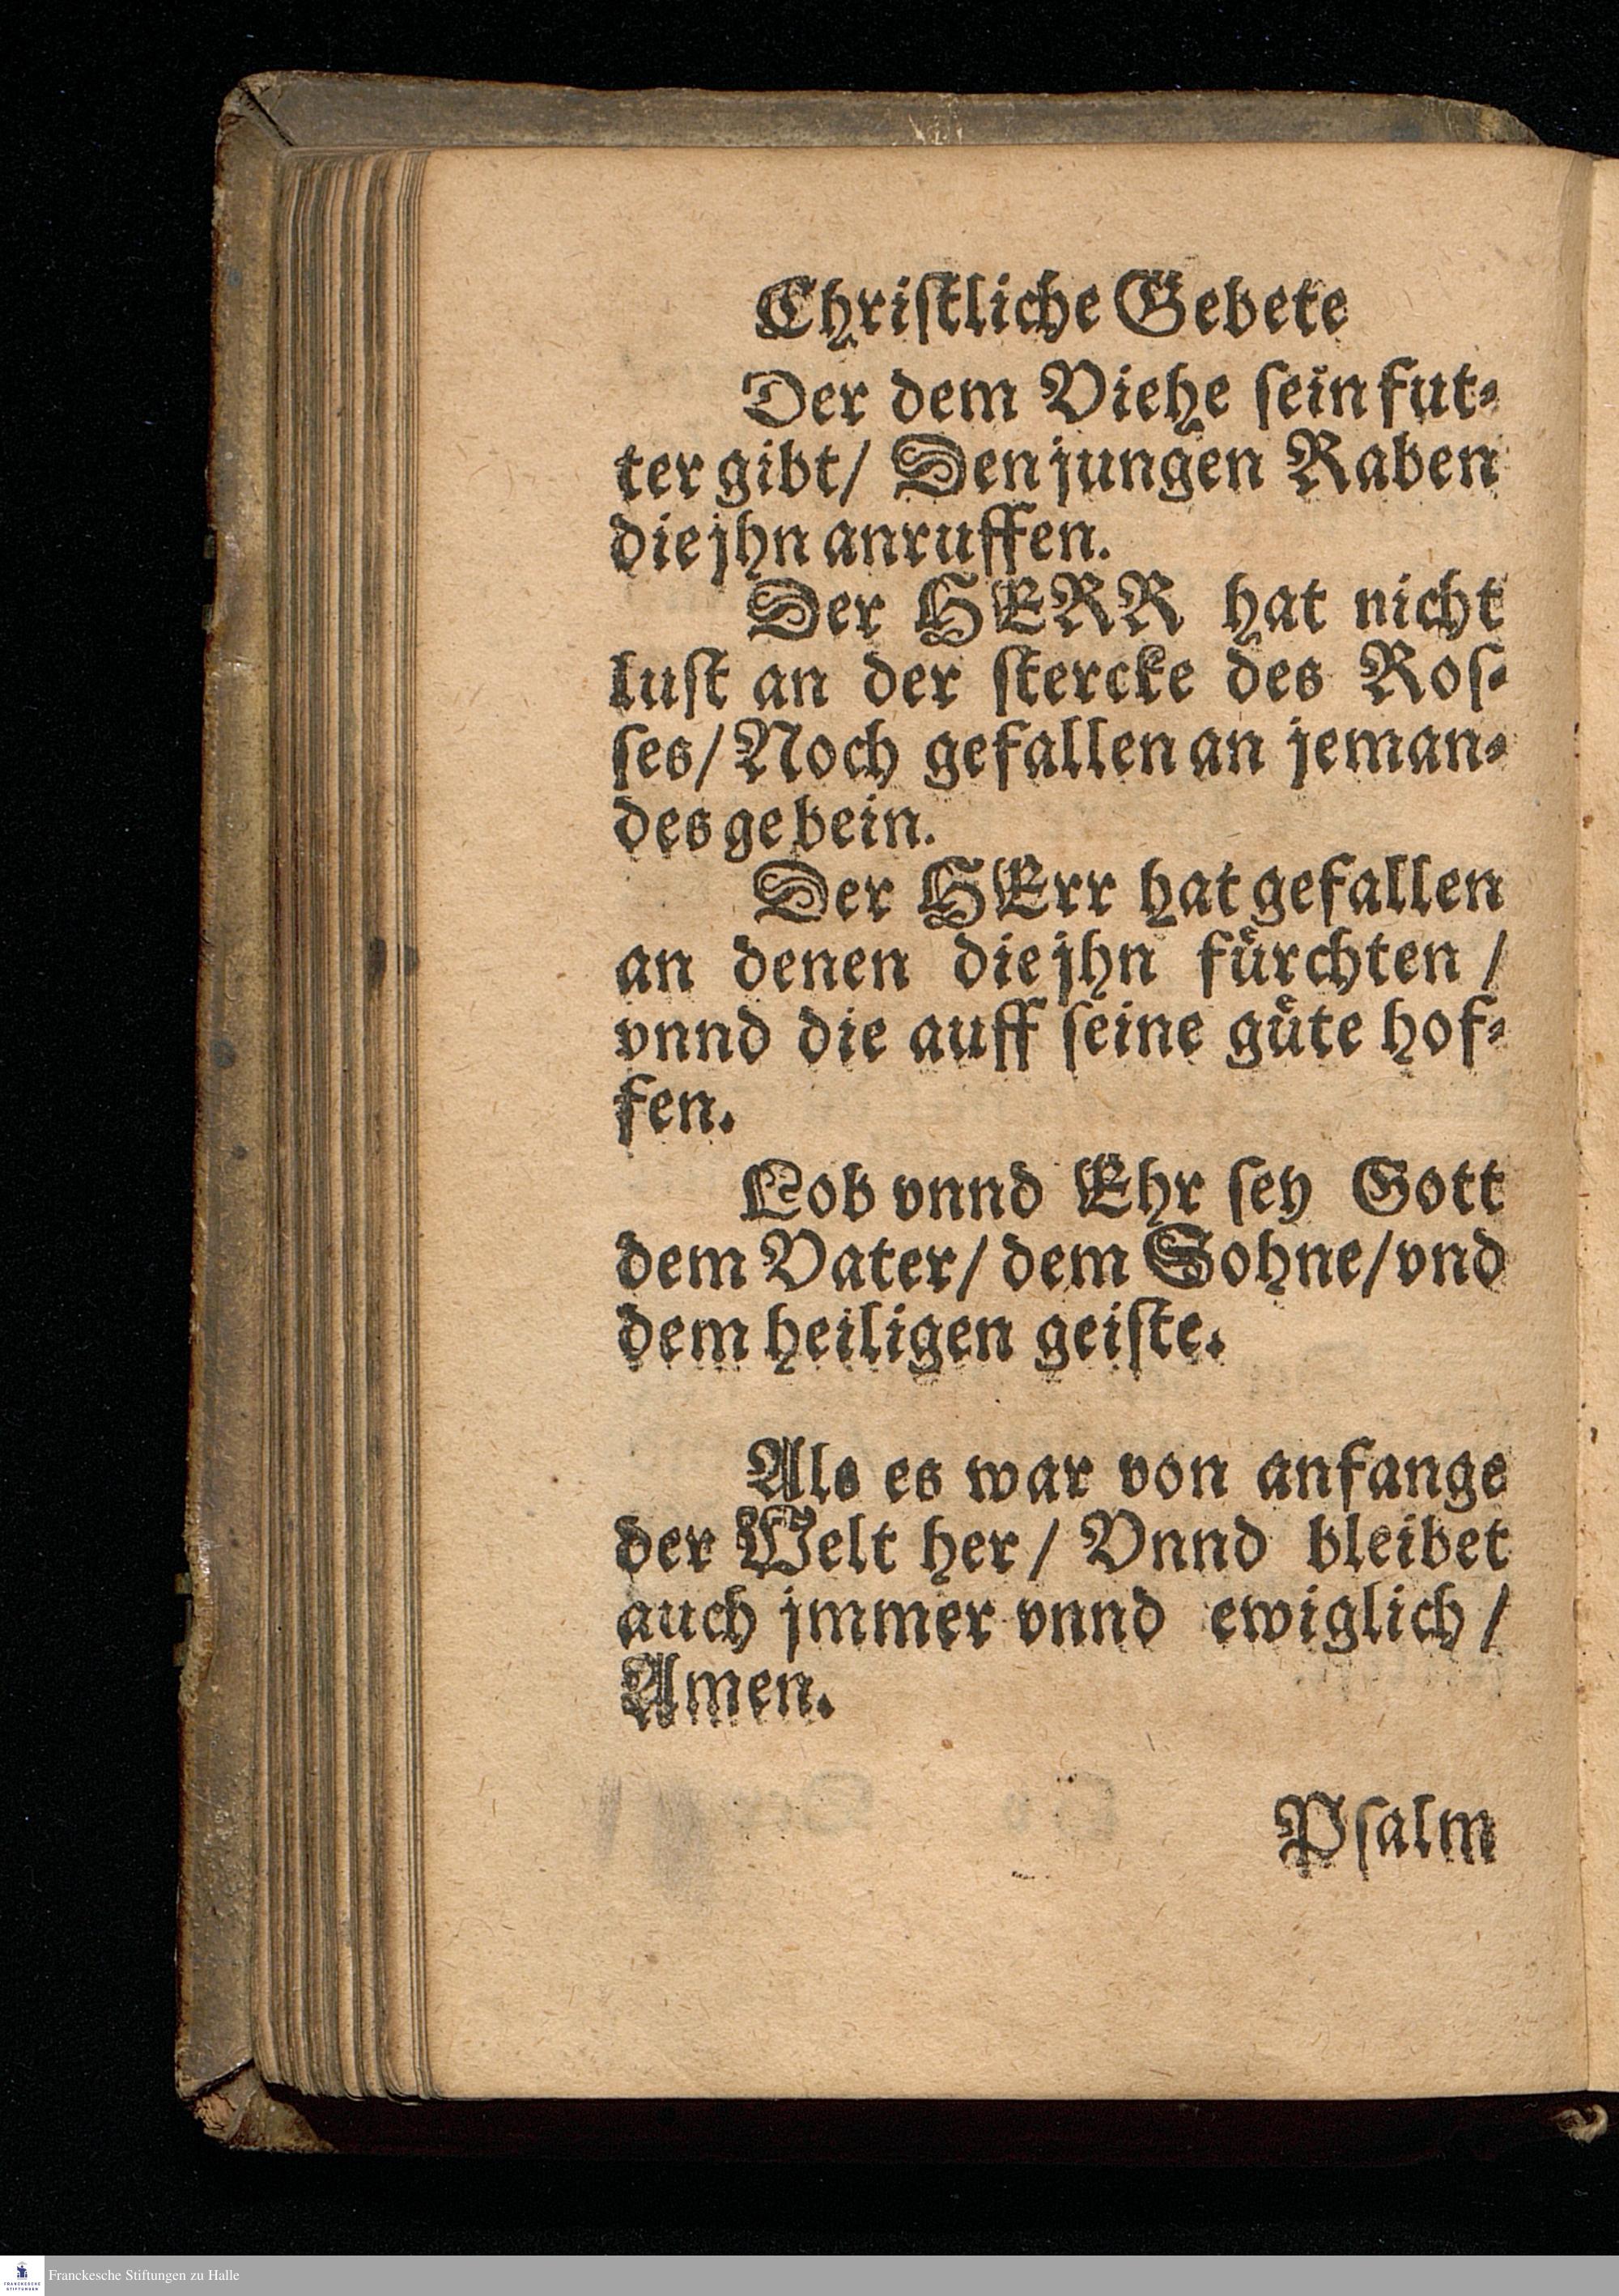 Christliche Gebete
Der dem Viehe sein fut⸗
ter gibt/ Den jungen Raben
die jhn anruffen.
Der HERR hat nicht
lust an der stercke des Ros⸗
ses/ Noch gefallen an jeman⸗
des gebein.
Der HErr hat gefallen
an denen die jhn fuͤrchten /
vnnd die auff seine guͤte hof⸗
fen.
Lob vnnd Ehr sey Gott
dem Vater/ dem Sohne/ vnd
dem heiligen geiste.
Als es war von anfange
der Welt her/ Vnnd bleibet
auch jmmer vnnd ewiglich /
Amen.
Psalm
FRANCKESCHE
STIFTUNGEN
Franckesche Stiftungen zu Halle